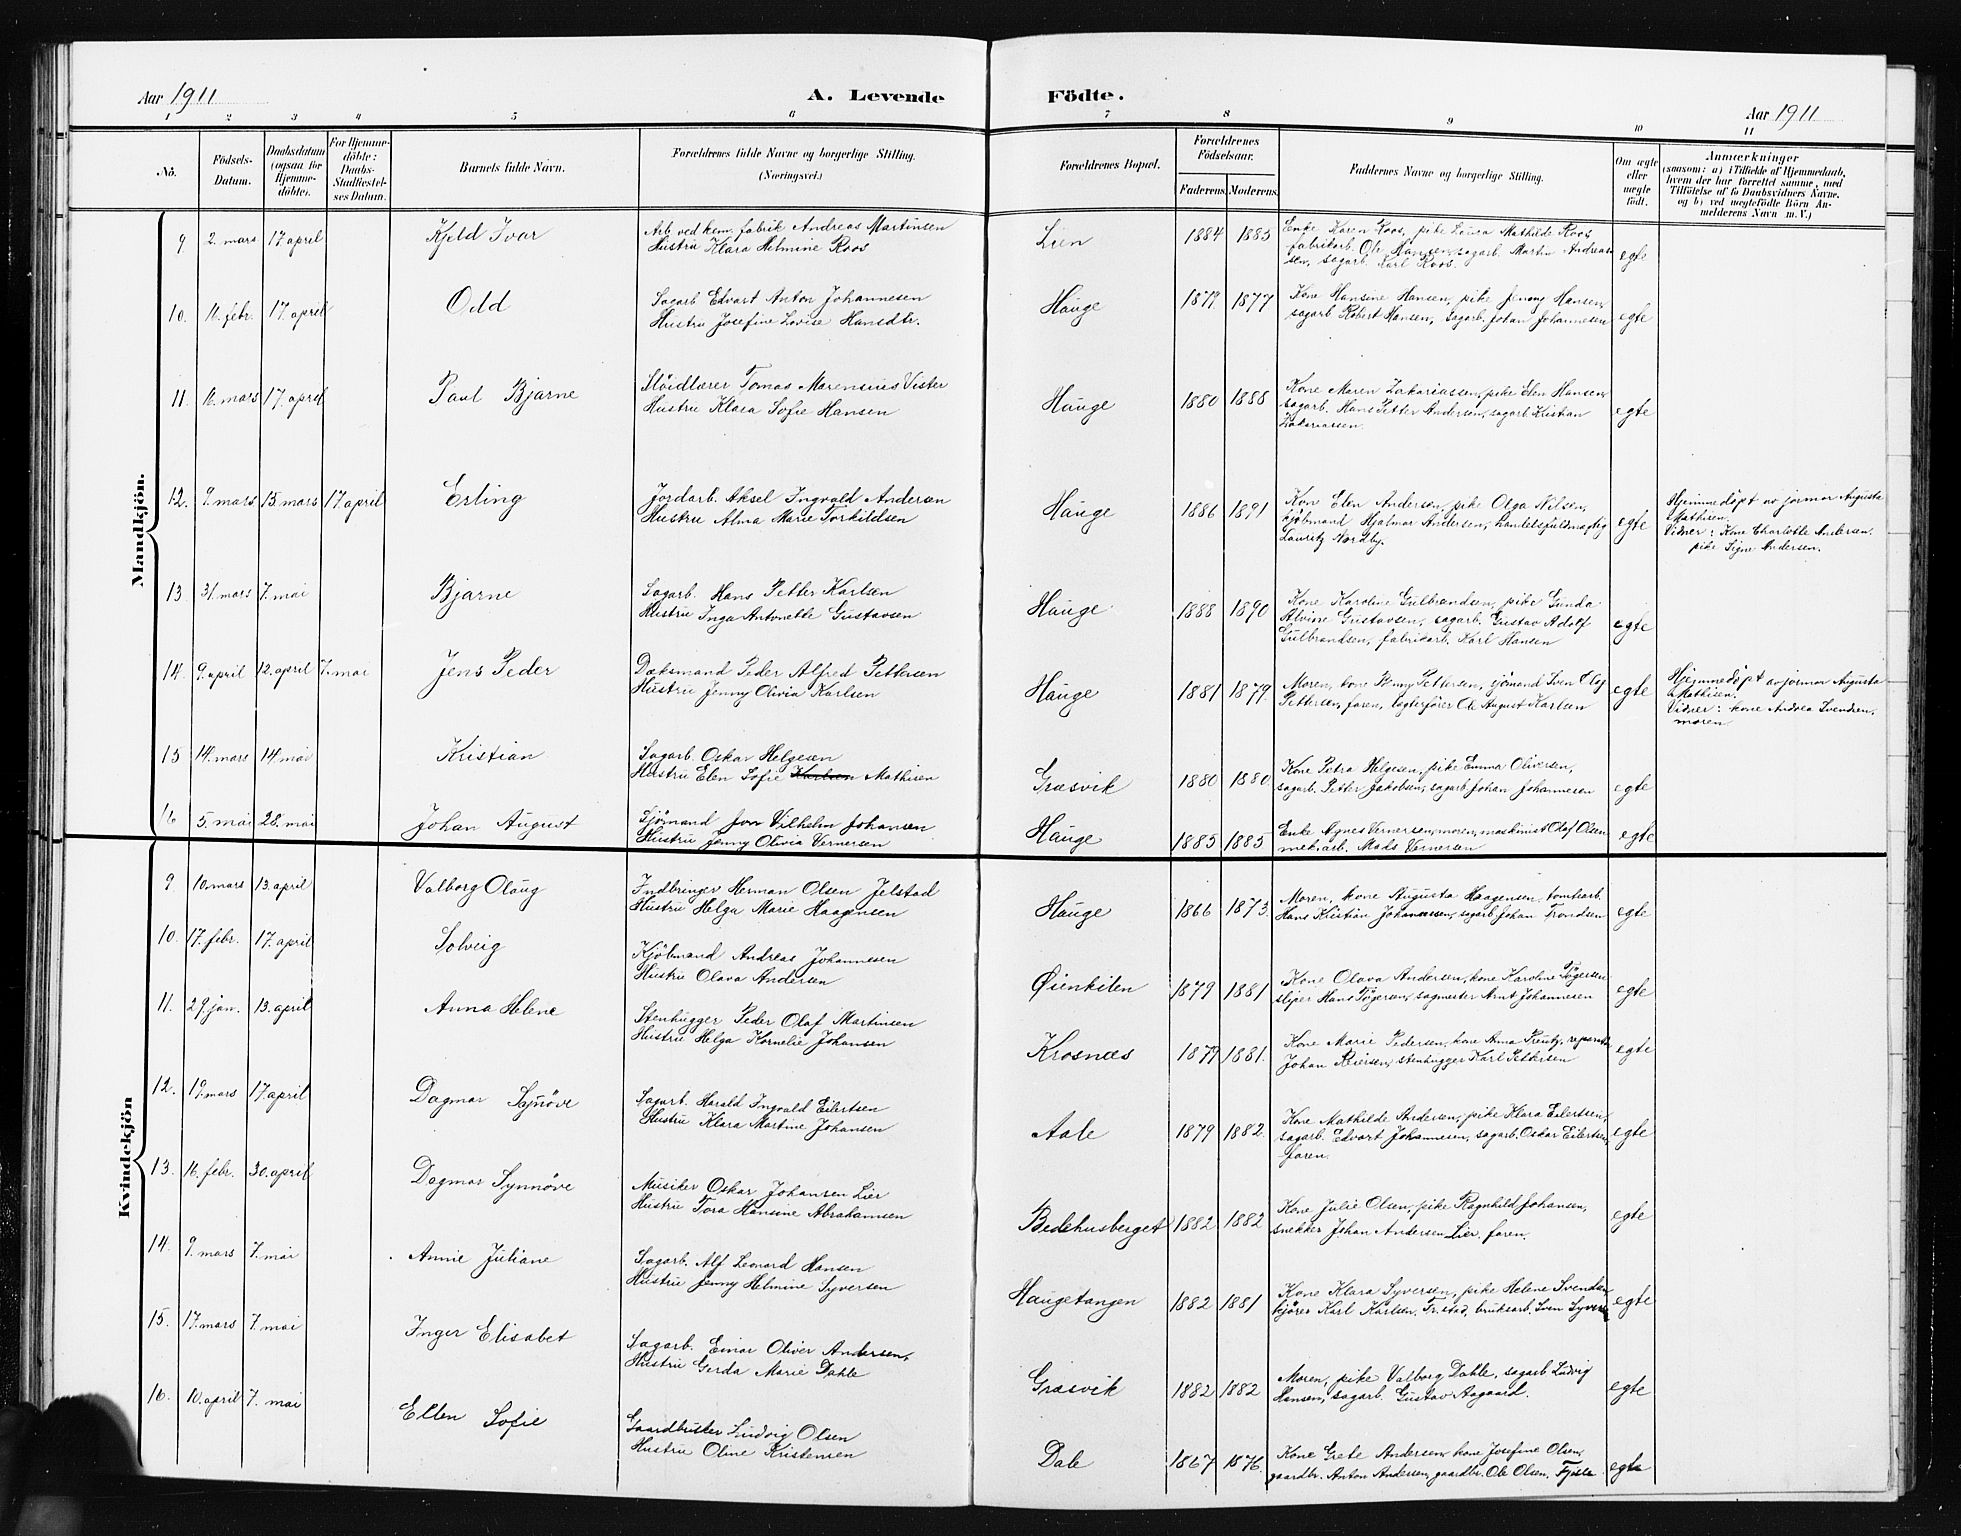 Aar 1911
A. Levende
Födte.
Aar 1911
1 2 3 4 5 6 7 8 9 10 11
No.
Födsels-
Datum.
Daabsdatum
(ogsaa for
Hjemme-
döbte).
For Hjemme-
döbte:
Daabs-
Stadfæstel-
ses Datum.
Barnets fulde Navn.
Forældrenes fulde Navne og borgerlige Stilling.
(Næringsvei.)
Forældrenes Bopæl.
Forældrenes
Födselsaar.
Faderens. Moderens.
Faddernes Navne og borgerlige Stilling.
Om ægte
eller
uægte
födt.
Anmærkninger
(saasom: a) i Tilfælde af Hjemmedaab,
hvem der har forrettet samme, med
Tilföielse af to Daabsvidners Navne,
og b) ved uegtefödte Börn An-
melderens Navn m. V.)
Mandkjön.
9 2. mars 17 april Kjeld Ivar
Arb. ved kem. fabrik Andreas Martinsen
Hustru Klara Helmine Roos
Lien 1884 1885
Enke Karen Roos, pike Lovisa Mathilde Roos
fabrikarb. Ole Hansen, sagarb. Martin Andreas-
sen, sagarb. Karl Roos.
egte
10. 11. febr. 17. april Odd
Sagarb Edvart Anton Johannesen
Hustru Josefine Lovise Hansdtr.
Hauge 1879 1877
Kone Hansine Hansen, pike Jenny Hansen,
sagarb Robert Hansen, sagarb. Johan Johannesen
egte
11. 16. mars 17. april Paul Bjarne
Slöidlærer Tomas Marensius Vister
Hustru Klara Sofie Hansen
Hauge 1880 1888
Kone Maren Zakariassen, pike Elen Hansen,
sagarb. Hans Petter Andersen, sagarb. Kristian
Zakariassen.
egte
12. 9. mars 15. mars 17. april Erling
Jordarb. Aksel Ingvald Andersen
Hustru Alma Marie Torkildsen
Hauge 1886 1891
Kone Elen Andersen, pike Olga Nilsen,
kjöbmand Hjalmar Andersen, handelsfuldmægtig
Lauritz Nordby.
egte
Hjemmedöpt av jormor Augusta
Mathisen.
Vidner: Kone Charlotte Andersen,
pike Signe Andersen.
13. 31. mars 7. mai Bjarne
Sagarb. Hans Petter Karlsen
Hustru Inga Antonette Gustavsen
Hauge 1888 1890
Kone Karoline Gulbrandsen, pike Gunda
Alvine Gustavsen, sagarb. Gustav Adolf
Gulbrandsen, fabrikarb. Karl Hansen
egte
14. 9. april 12. april 7. mai Jens Peder
Dæksmand Peder Alfred Pettersen
Hustru Jenny Olivia Karlsen
Hauge 1881 1879.
Moren, kone Pettersen, sjömand Sven Olaf
Pettersen, faren, lægterfører Ole August Karlsen
egte
Hjemmedöpt av jormor Augusta
Mathisen.
Vidner: kone Andrea Svendsen,
moren
15 14. mars 14. mai Kristian
Sagarb. Oskar Helgesen
Hustru Elen Sofie Karlsen Mathisen
Græsvik 1880 1880.
Kone Petra Helgesen, pike Emma Oliversen,
sagarb. Petter Jakobsen, sagarb Johan Johannesen
egte
16 5. mai 28. mai Johan August
Sjömand Vilhelm Johansen
Hustru Jenny Olivia Vernersen
Hauge 1885 1885
Enke Agnes Vernersen, moren, maskinist Olaf Olsen
mek. arb. Mads Vernersen
egte
Kvindekjön
9. 10. mars 13. april Valborg Olaug
Indbringer Herman Olsen Jelstad
Hustru Helga Marie Haagensen
Hauge 1866 1873.
Moren, kone Augusta Haagensen, tomtearb.
Hans Kristian Johannessen, sagarb Johan Trondsen
egte
10. 17. febr. 17. april Solveig
Kjöbmand Andreas Johannesen
Hustru Olava Andersen
Øienkilen 1879 1881
Kone Olava Andersen, kone Karoline Tögersen
sliper Hans Tögersen, sagmester Arnt Johannesen
egte
11. 29. jan. 13. april Anna Helene
Stenhugger Peder Olaf Martinsen
Hustru Helga Kornelie Johansen
Krosnæs 1879 1881.
Kone Marie Pedersen, kone Anna
Johan Reiersen, stenhugger Karl Pettersen
egte
12. 19. mars 17. april Dagmar Synöve
Sagarb. Harald Ingvald Eilertsen
Hustru Klara Martine Johansen
Aale 1879 1882.
Kone Mathilde Andersen, pike Klara Eilertsen,
sagarb. Edvart Johannesen, sagarb. Oskar Eilertsen,
faren.
egte
13. 16. febr. 30. april Dagmar Synnöve
Musiker Oskar Johansen Lier
Hustru Tora Hansine Abrahamsen
Bedehusberget 1882 1882
Kone Julie Olsen, pike Ragnhild Johansen,
snekker Johan Andersen Lier, faren.
egte
14. 9. mars 7. mai Annie Juliane
Sagarb. Alf Leonard Hansen
Hustru Jenny Helmine Syversen
Haugetangen 1882 1881
Kone Klara Syversen, pike Helene Svendsen
kjörer Karl Karlsen, Fr.stad, bruksarb. Sven Syvers
egte
15. 17. mars 7. mai Inger Elisabet
Sagarb. Einar Oliver Andersen,
Hustru Gerda Marie Dahle
Græsvik 1882 1882
Moren, pike Valborg Dahle, sagarb Ludvig
Hansen, sagarb. Gustav Aagaard.
egte
16. 10. april 7. mai Ellen Sofie
Gaardbruker Ludvig Olsen
Hustru Oline Kristensen
Dale 1867 1876
Kone Grete Andersen, kone Josefine Olsen,
gaardbr. Anton Andersen, gaardbr. Ole Olsen,
egte